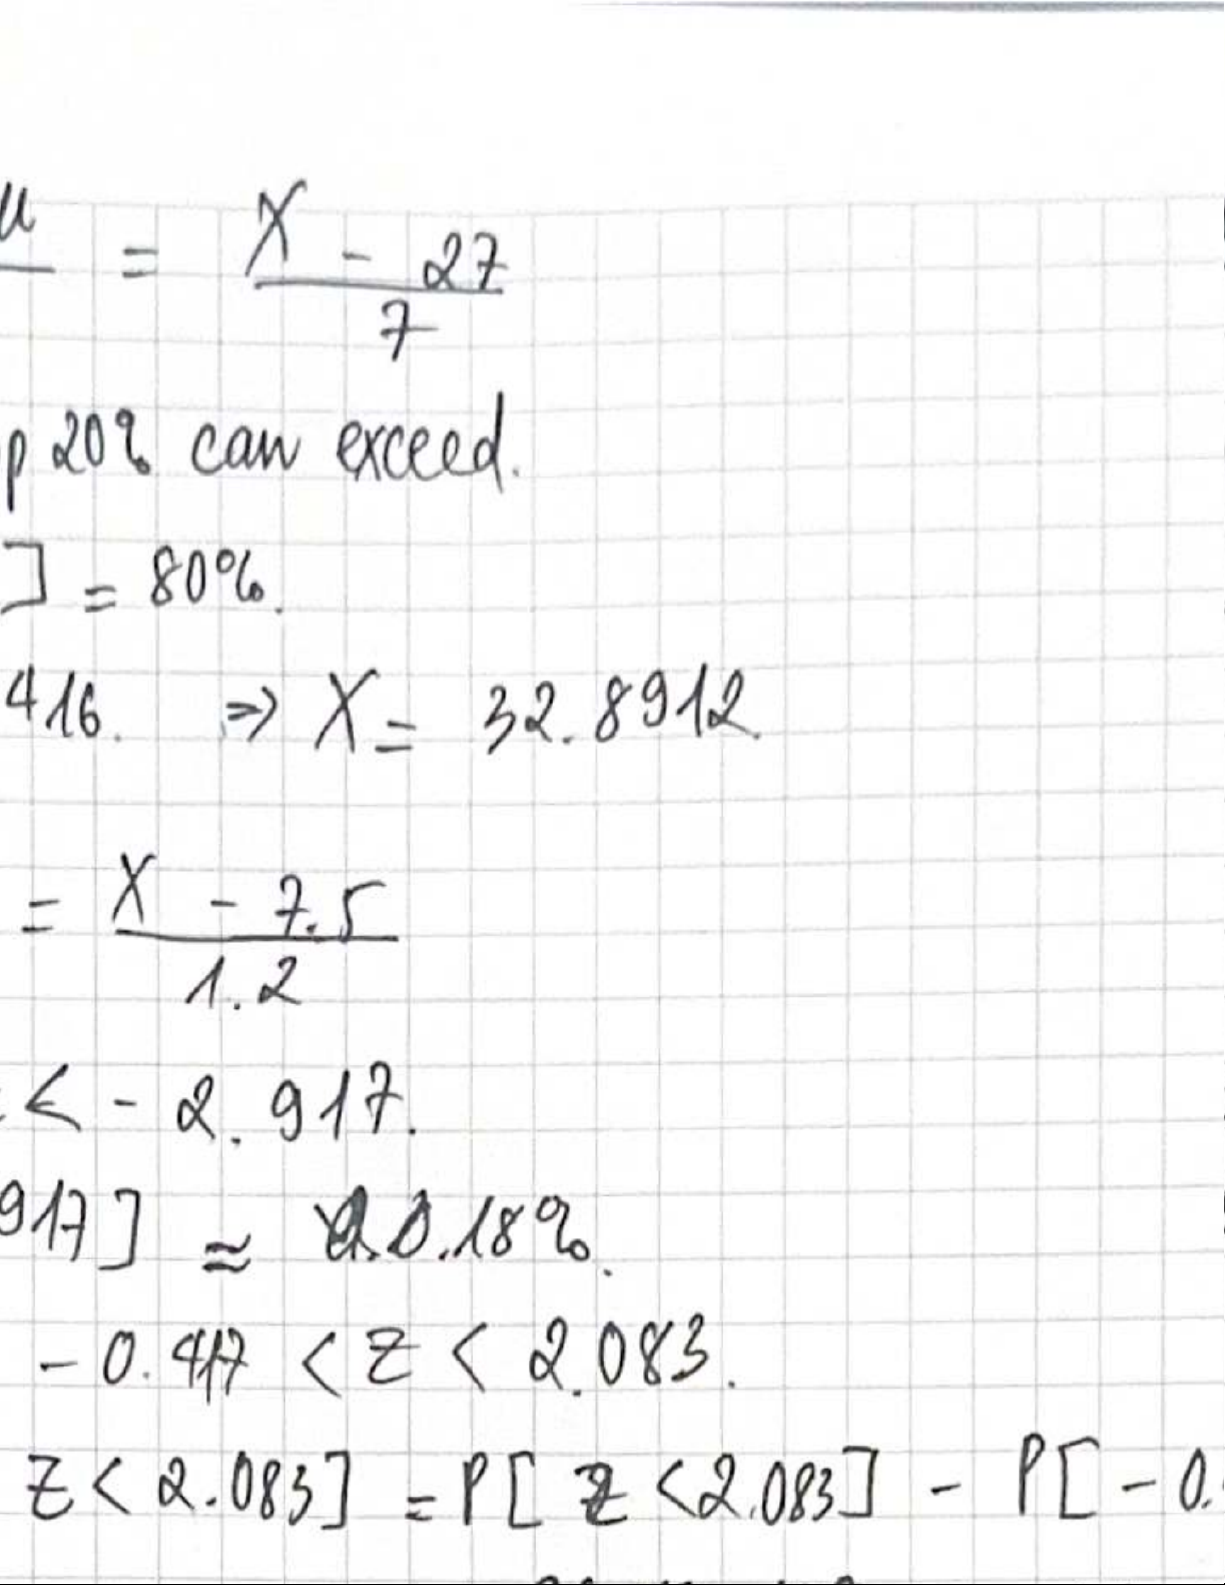 μ = X - 27
7
p 20% can exceed.
] = 80%.
416. ⇒ X = 32.8912.
= X - 7.5
1.2
< - 2.917.
917] ≈ 0.18%.
- 0.417 < Z < 2.083.
Z < 2.083] = P[ Z < 2.083] - P[ - 0.